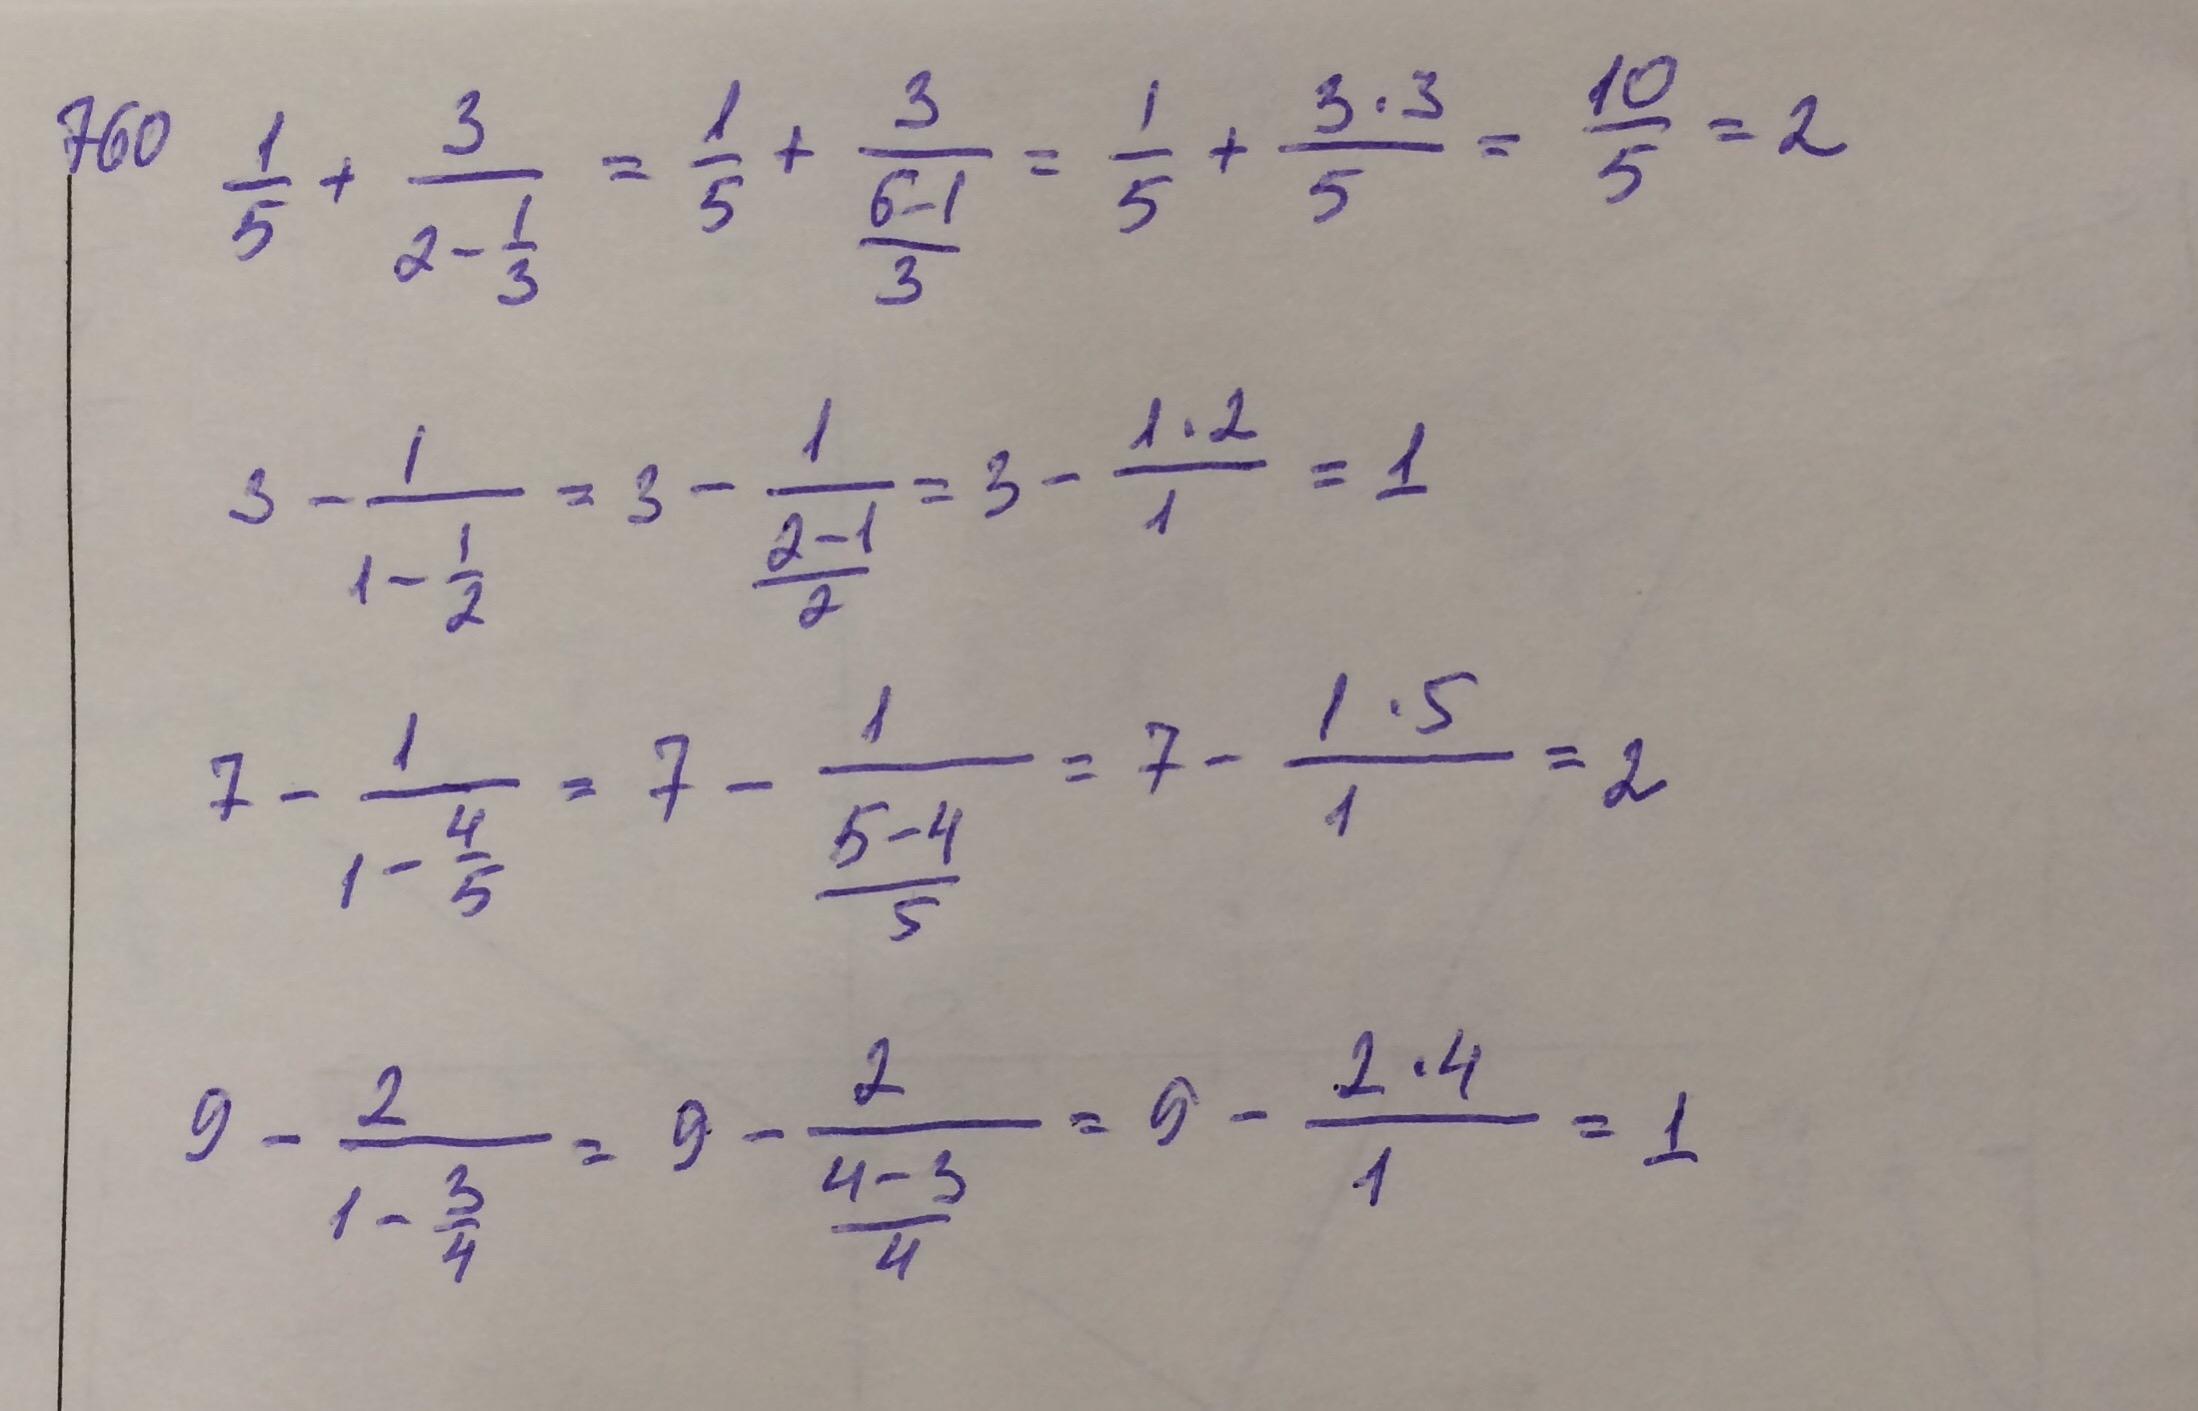 760 1/5 + 3/(2 - 1/3) = 1/5 + 3/((6-1)/3) = 1/5 + (3·3)/5 = 10/5 = 2
3 - 1/(1 - 1/2) = 3 - 1/((2-1)/2) = 3 - (1·2)/1 = 1
7 - 1/(1 - 4/5) = 7 - 1/((5-4)/5) = 7 - (1·5)/1 = 2
9 - 2/(1 - 3/4) = 9 - 2/((4-3)/4) = 9 - (2·4)/1 = 1